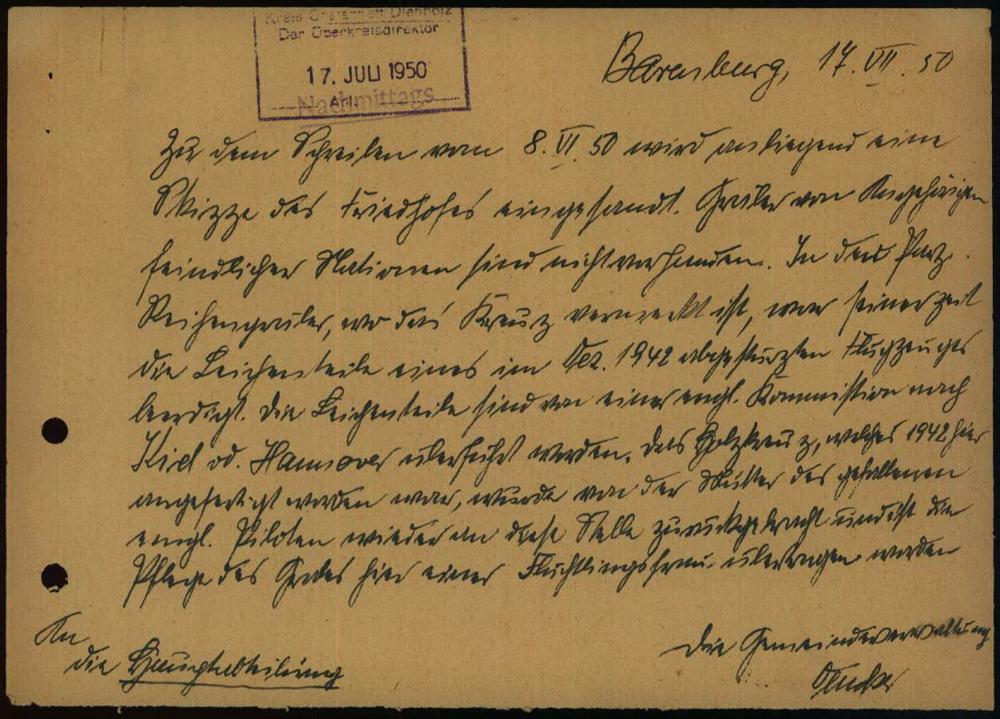 Kreis Grafschaft Diepholz
Der Oberkreisdirektor
17. JULI 1950
Nachmittags
Barenburg, 17. VII. 50
Zu dem Schreiben vom 8. VI. 50 wird anliegend eine
Skizze des Friedhofes eingesandt. Gräber von Angehörigen
feindlicher Nationen sind nicht vorhanden. In den Parz.
Reihengräber, wo das Kreuz vermerkt ist, war seiner zeit
die Leichenteile eines im Dez. 1942 abgestürzten Flugzeuges
beerdigt. Die Leichenteile sind von einer engl. Kommission nach
Kiel od. Hannover überführt worden. Das Holzkreuz, welches 1942 hier
angefertigt worden war, wurde von der Mutter des gefallenen
engl. Piloten wieder an diese Stelle zurückgebracht und ist die
Pflege des Grabes hier einer Flüchtlingsfrau übertragen worden
Die Gemeindeverwaltung
An
die Hauptabteilung